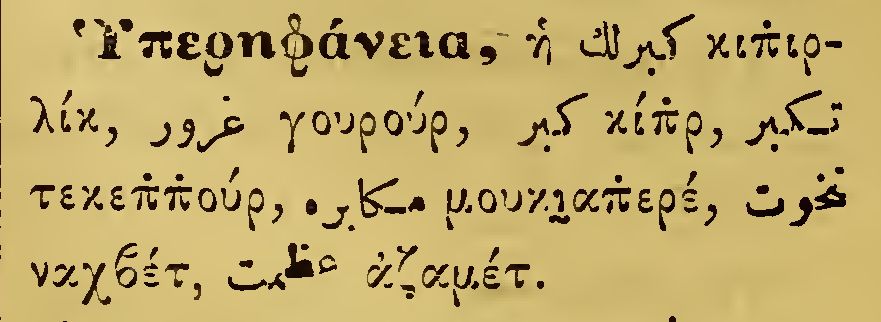 Ὑπερηφάνεια, ἡ كبرلك κιπ̇ιρ-
λίκ, غرور γουρούρ, كبر κίπ̇ρ, تكبر
τεκεπ̇π̇ούρ, مكابره μουκι̮απ̇ερέ, نخوت
ναχβέτ, عظمت ἀζαμέτ.